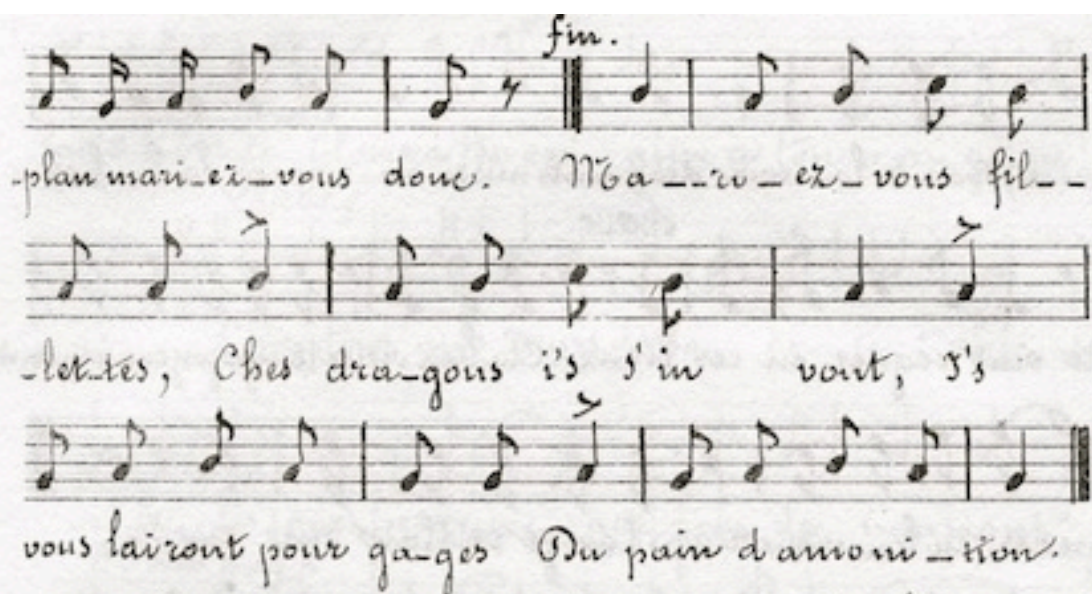 fin.
-plan mari-ez-vous donc. Ma--ri-ez-vous fil--
-let-tes, Ches dra-gons i's s'in vont, I's
vous lairont pour ga-ges Du pain d'amoni-tion.